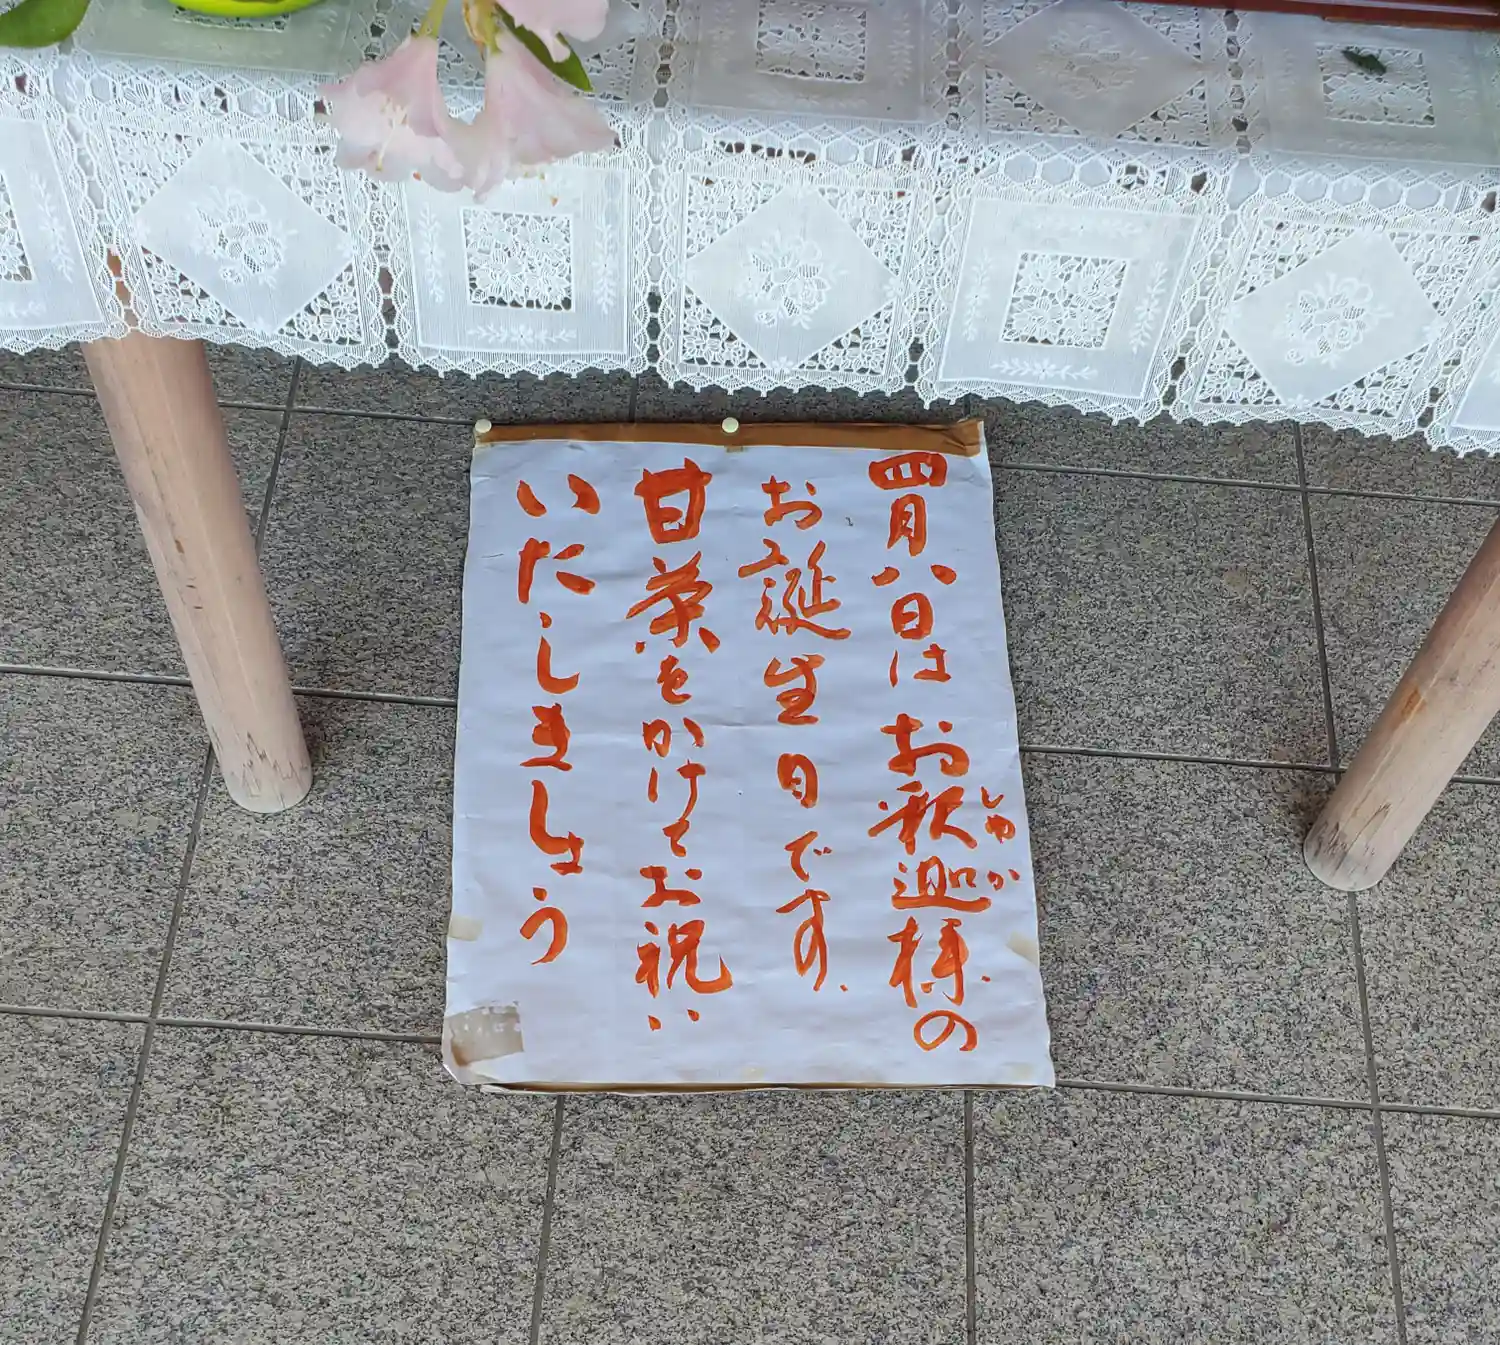 四月八日はお釈迦様の
しゃか
お誕生日です.
甘茶をかけてお祝い
いたしましょう